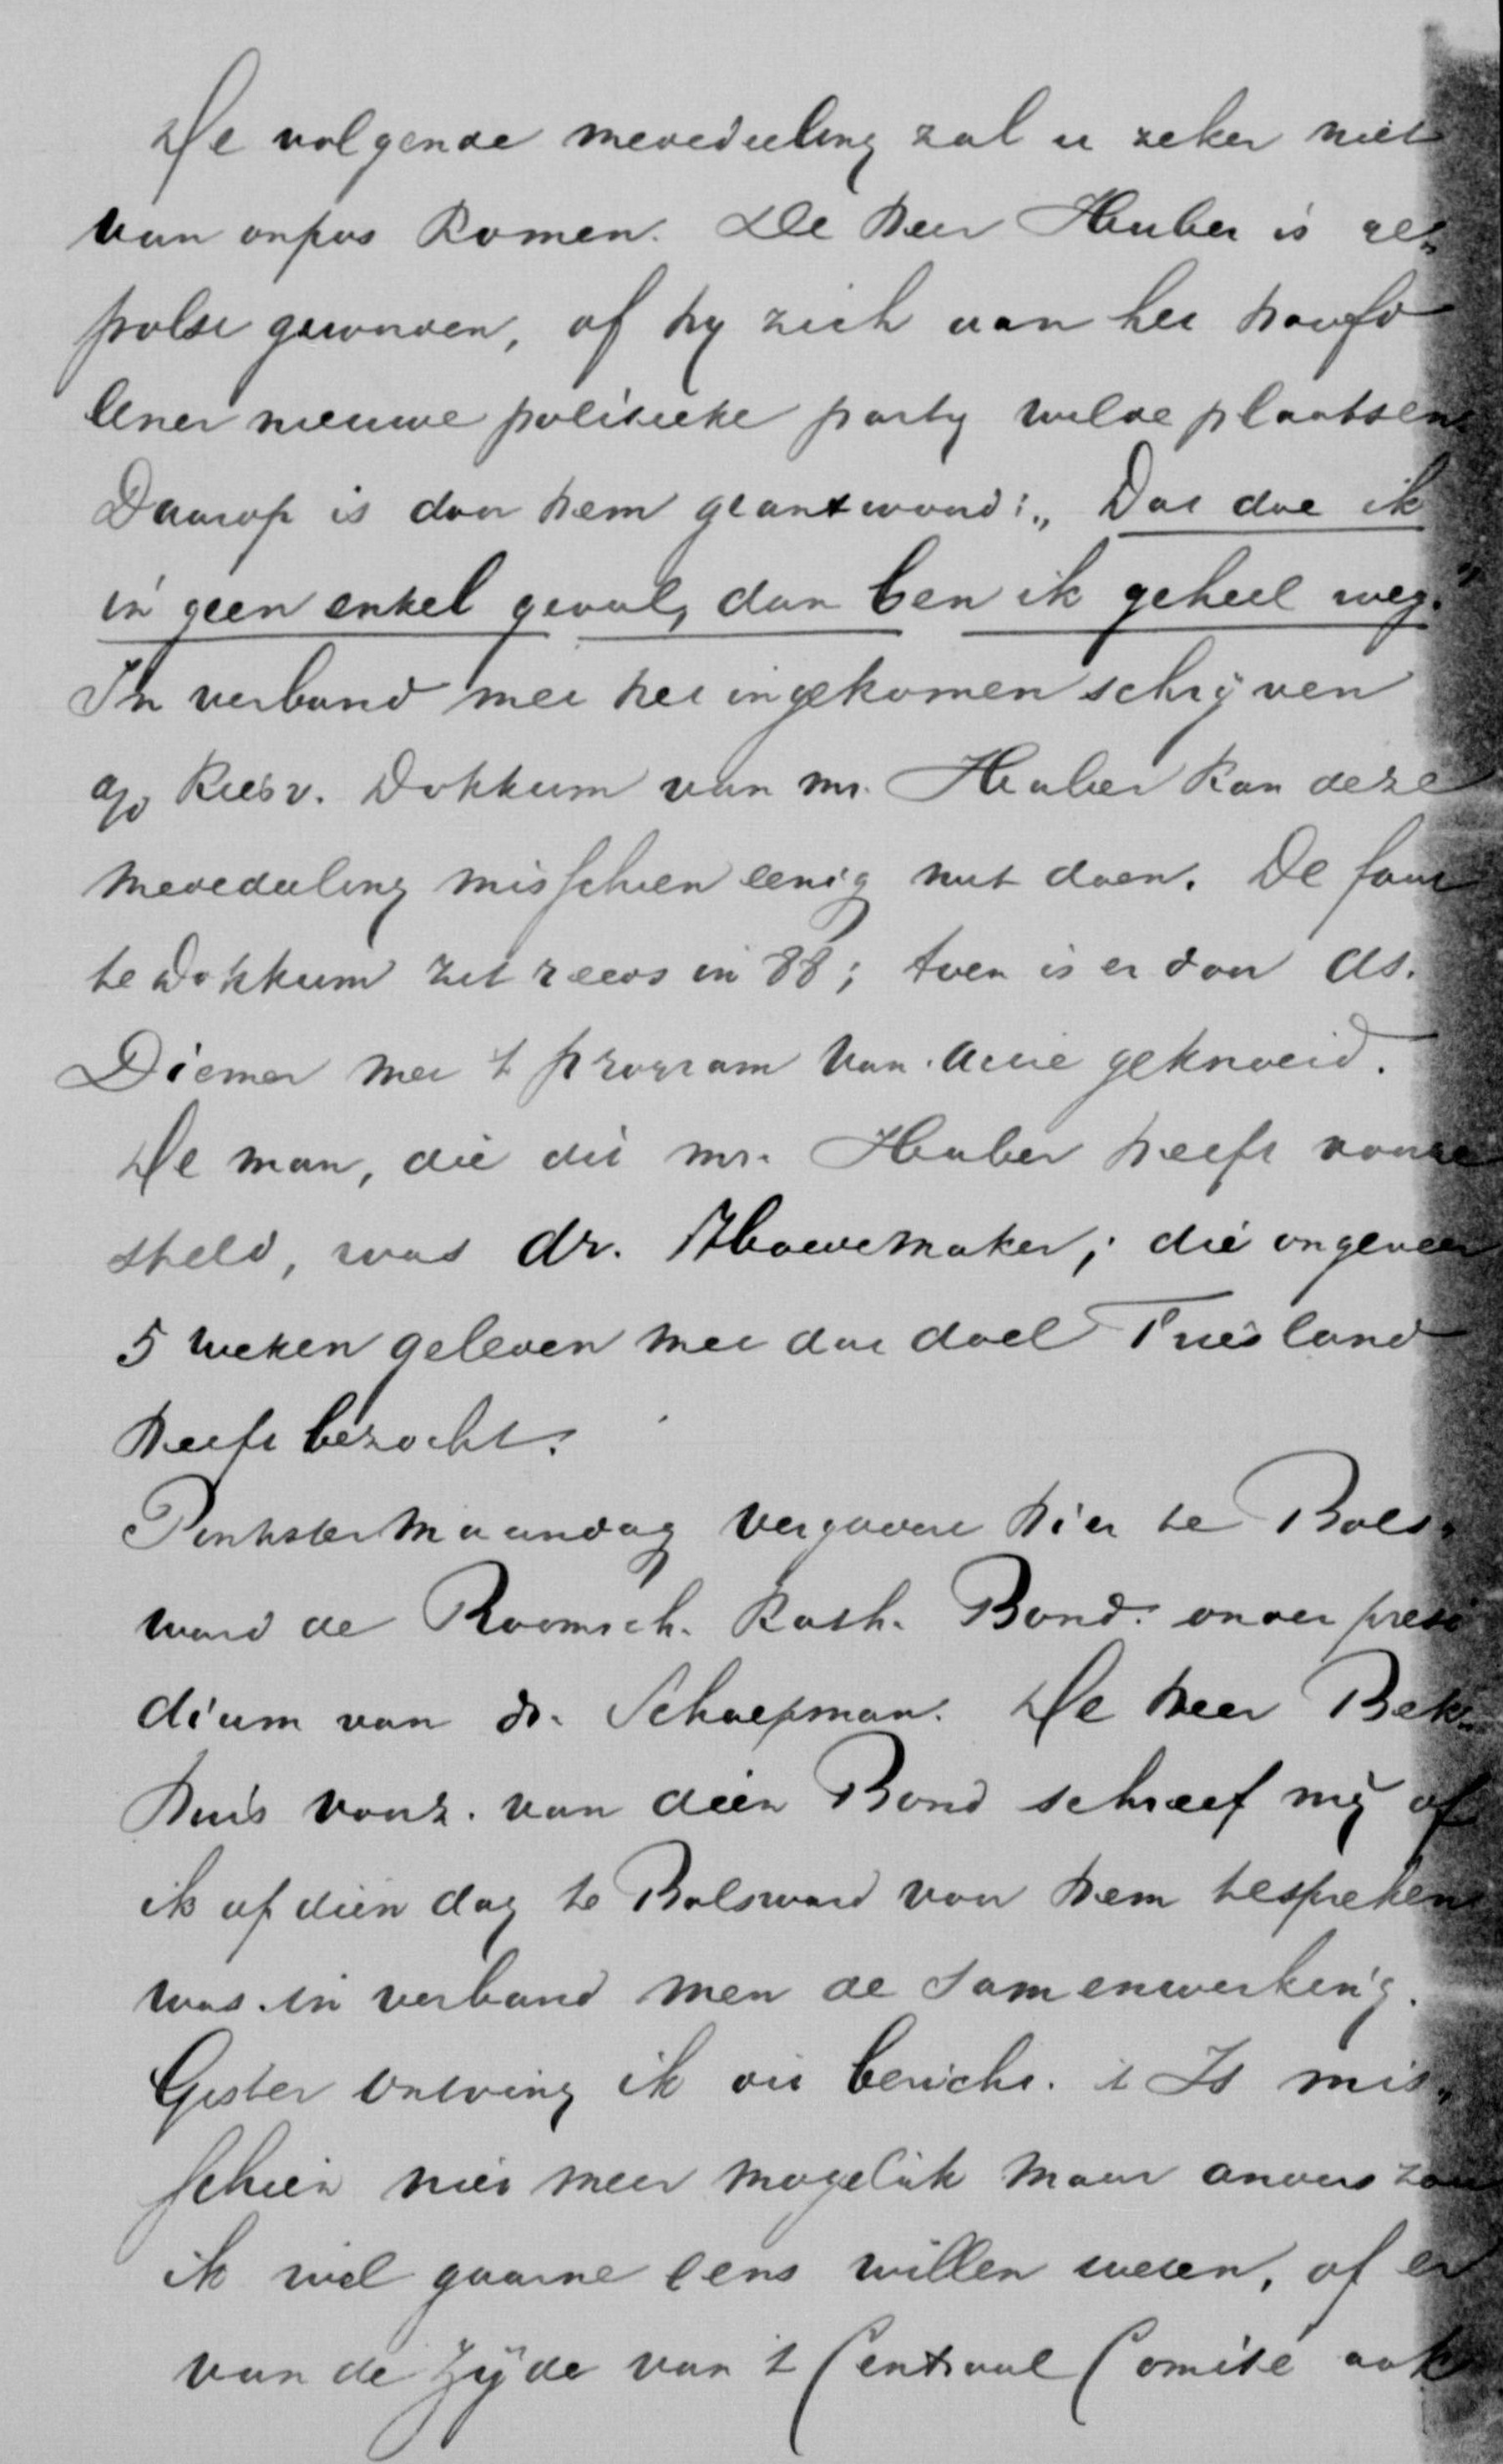 De volgende mededeeling zal u zeker niet
van onpas komen. De heer Heuber is ge„
polst geworden, of hy zich aan het hoofd
eener nieuwe politieke party wilde plaatsen.
Daarop is door hem geantwoord: „Dat doe ik
in geen enkel geval, dan ben ik geheel weg."
In verband met het ingekomen schrijven
a/o Kiesv. Dokkum van mr. Heuber kan deze
mededeeling misschien eenig nut doen. De fout
te Dokkum zit reeds in 88; toen is er door ds.
Diemer met 't program van actie geknoeid.
De man, die dit mr. Heuber heeft voorge
steld, was dr. Hoedemaker; die ongeveer
5 weken geleden met dat doel Friesland
heeft bezocht.
Pinkstermaandag vergadert hier te Bols„
ward de Roomsch. Kath. Bond onder presi
dium van dr. Schaepman. De heer Bek„
huis voorz. van dien Bond schreef mij of
ik op dien dag te Bolsward voor hem te spreken
was in verband men de samenwerking.
Gister ontving ik dit bericht. 't Is mis„
schien niet meer mogelijk maar anders zou
ik wel gaarne eens willen weten, of er
van de zijde van 't Centraal Comité ook